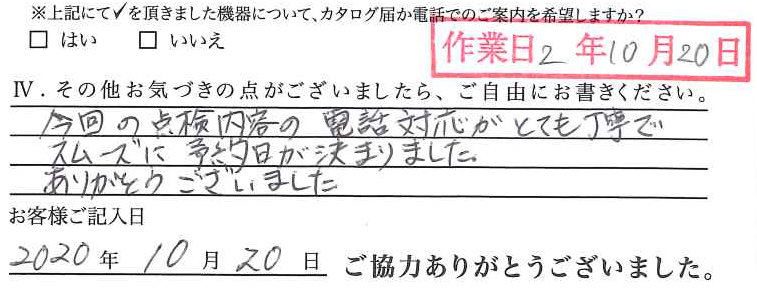 ※上記にて✓を頂きました機器について、カタログ届か電話でのご案内を希望しますか?
□ はい □ いいえ
作業日2年10月20日
Ⅳ．その他お気づきの点がございましたら、ご自由にお書きください。
今回の点検内容の電話対応がとても丁寧で
スムーズに予約日が決まりました。
ありがとうございました
お客様ご記入日
2020年10月20日 ご協力ありがとうございました。